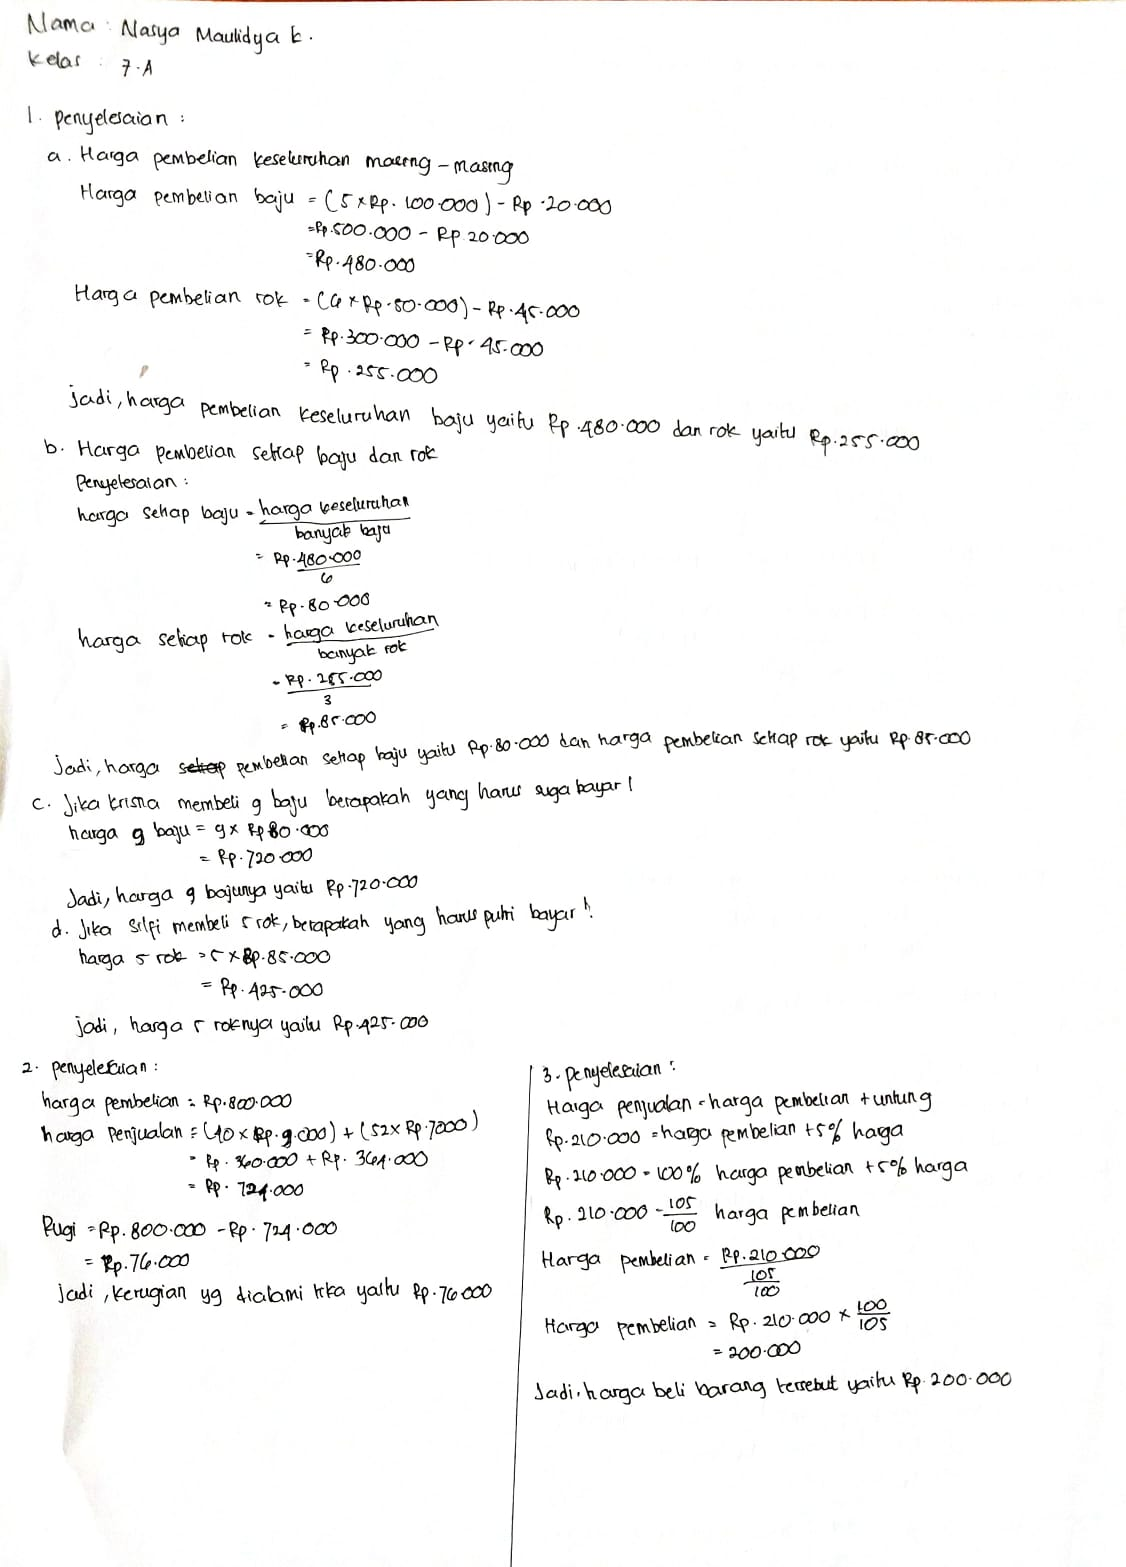 Nama : Nasya Maulidya k.
Kelas : 7.A
1. Penyelesaian :
a. Harga pembelian keseluruhan masing - masing
Harga pembelian baju = (5 x Rp. 100.000) - Rp .20.000
= Rp.500.000 - Rp.20.000
= Rp.480.000
Harga pembelian rok = (6 x Rp.50.000) - Rp.45.000
= Rp.300.000 - Rp.45.000
= Rp.255.000
jadi, harga pembelian keseluruhan baju yaitu Rp.480.000 dan rok yaitu Rp.255.000
b. Harga pembelian setiap baju dan rok
Penyelesaian :
harga setiap baju = harga keseluruhan
banyak baju
= Rp.480.000
6
= Rp.80.000
harga setiap rok = harga keseluruhan
banyak rok
= Rp.255.000
3
= Rp.85.000
Jadi, harga setiap pembelian setiap baju yaitu Rp.80.000 dan harga pembelian setiap rok yaitu Rp.85.000
c. Jika krisna membeli 9 baju berapakah yang harus bayar!
harga 9 baju = 9 x Rp 80.000
= Rp.720.000
Jadi, harga 9 bajunya yaitu Rp.720.000
d. Jika silfi membeli 5 rok, berapakah yang harus putri bayar!
harga 5 rok = 5 x Rp.85.000
= Rp.425.000
jadi, harga 5 roknya yaitu Rp.425.000
2. Penyelesaian :
harga pembelian = Rp.800.000
harga penjualan = (40 x Rp.9.000) + (52 x Rp.7000)
= Rp.360.000 + Rp.364.000
= Rp.724.000
Rugi = Rp.800.000 - Rp.724.000
= Rp.76.000
jadi, kerugian yg dialami ika yaitu Rp.76.000
3. Penyelesaian :
Harga penjualan = harga pembelian + untung
Rp.210.000 = harga pembelian + 5% harga
Rp.210.000 = 100% harga pembelian + 5% harga
Rp.210.000 = 105 harga pembelian
100
Harga pembelian = Rp.210.000
105
100
Harga pembelian = Rp.210.000 x 100
105
= 200.000
Jadi, harga beli barang tersebut yaitu Rp.200.000